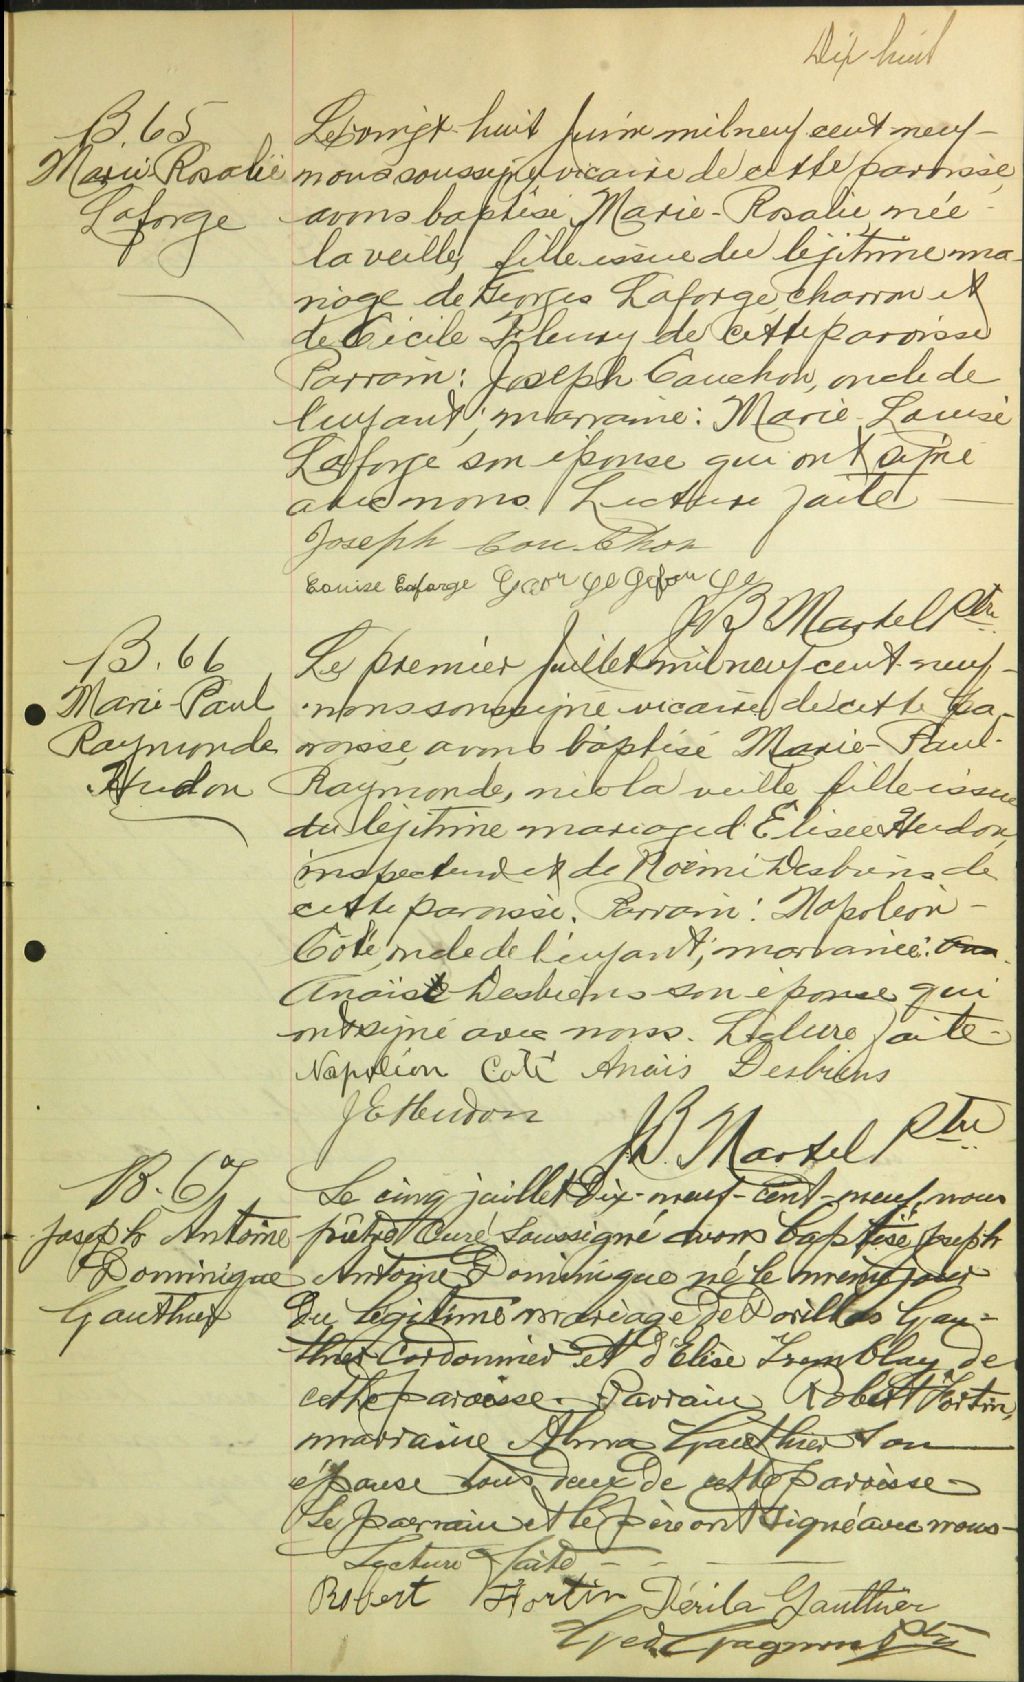 Dix huit
B 65
Marie Rosalie
Laforge
Le vingt-huit juin mil neuf cent neuf-
nous soussigné vicaire de cette paroisse
avons baptisé Marie-Rosalie née
la veille, fille issue du légitime ma-
riage de Georges Laforge, charron et
de Cécile Fleury de cette paroisse
Parrain: Joseph Cauchon, oncle de
l'enfant; marraine: Marie Louise
Laforge son épouse qui ont signé
avec nous. Lecture faite
Joseph Couchon
Louise Laforge George Lafor ge
J B Martel Ptre
B. 66
Marie-Paul
Raymonde
Hudon
Le premier juillet mil neuf cent neuf-
nous soussigné vicaire de cette pa-
roisse, avons baptisé Marie-Paul-
Raymonde, née la veille fille issue
du légitime mariage d'Elisée Hudon,
inspecteur et de Noémi Desbiens de
cette paroisse. Parrain: Napoléon-
Côté, oncle de l'enfant; marraine:
Anaïs Desbiens son épouse qui
ont signé avec nous. Lecture faite-
Napoléon Coté Anais Desbiens
J E Hudon
J.B. Martel Ptre
B. 67
Joseph Antoine
Dominique
Gauthier
Le cinq juillet Dix-neuf-cent-neuf, nous
prêtre Curé soussigné avons baptisé Joseph
Antoine Dominique né le même jour
Du légitime mariage de Dorillas Gau-
thier Cordonnier et d'Elise Tremblay de
cette paroisse. Parrain Robert Fortin,
marraine Alma Gauthier son
épouse tous deux de cette paroisse-
Le parrain et le père ont signé avec nous-
Lecture faite
Robert Fortin Dérila Gauthier
Gagnon Ptre